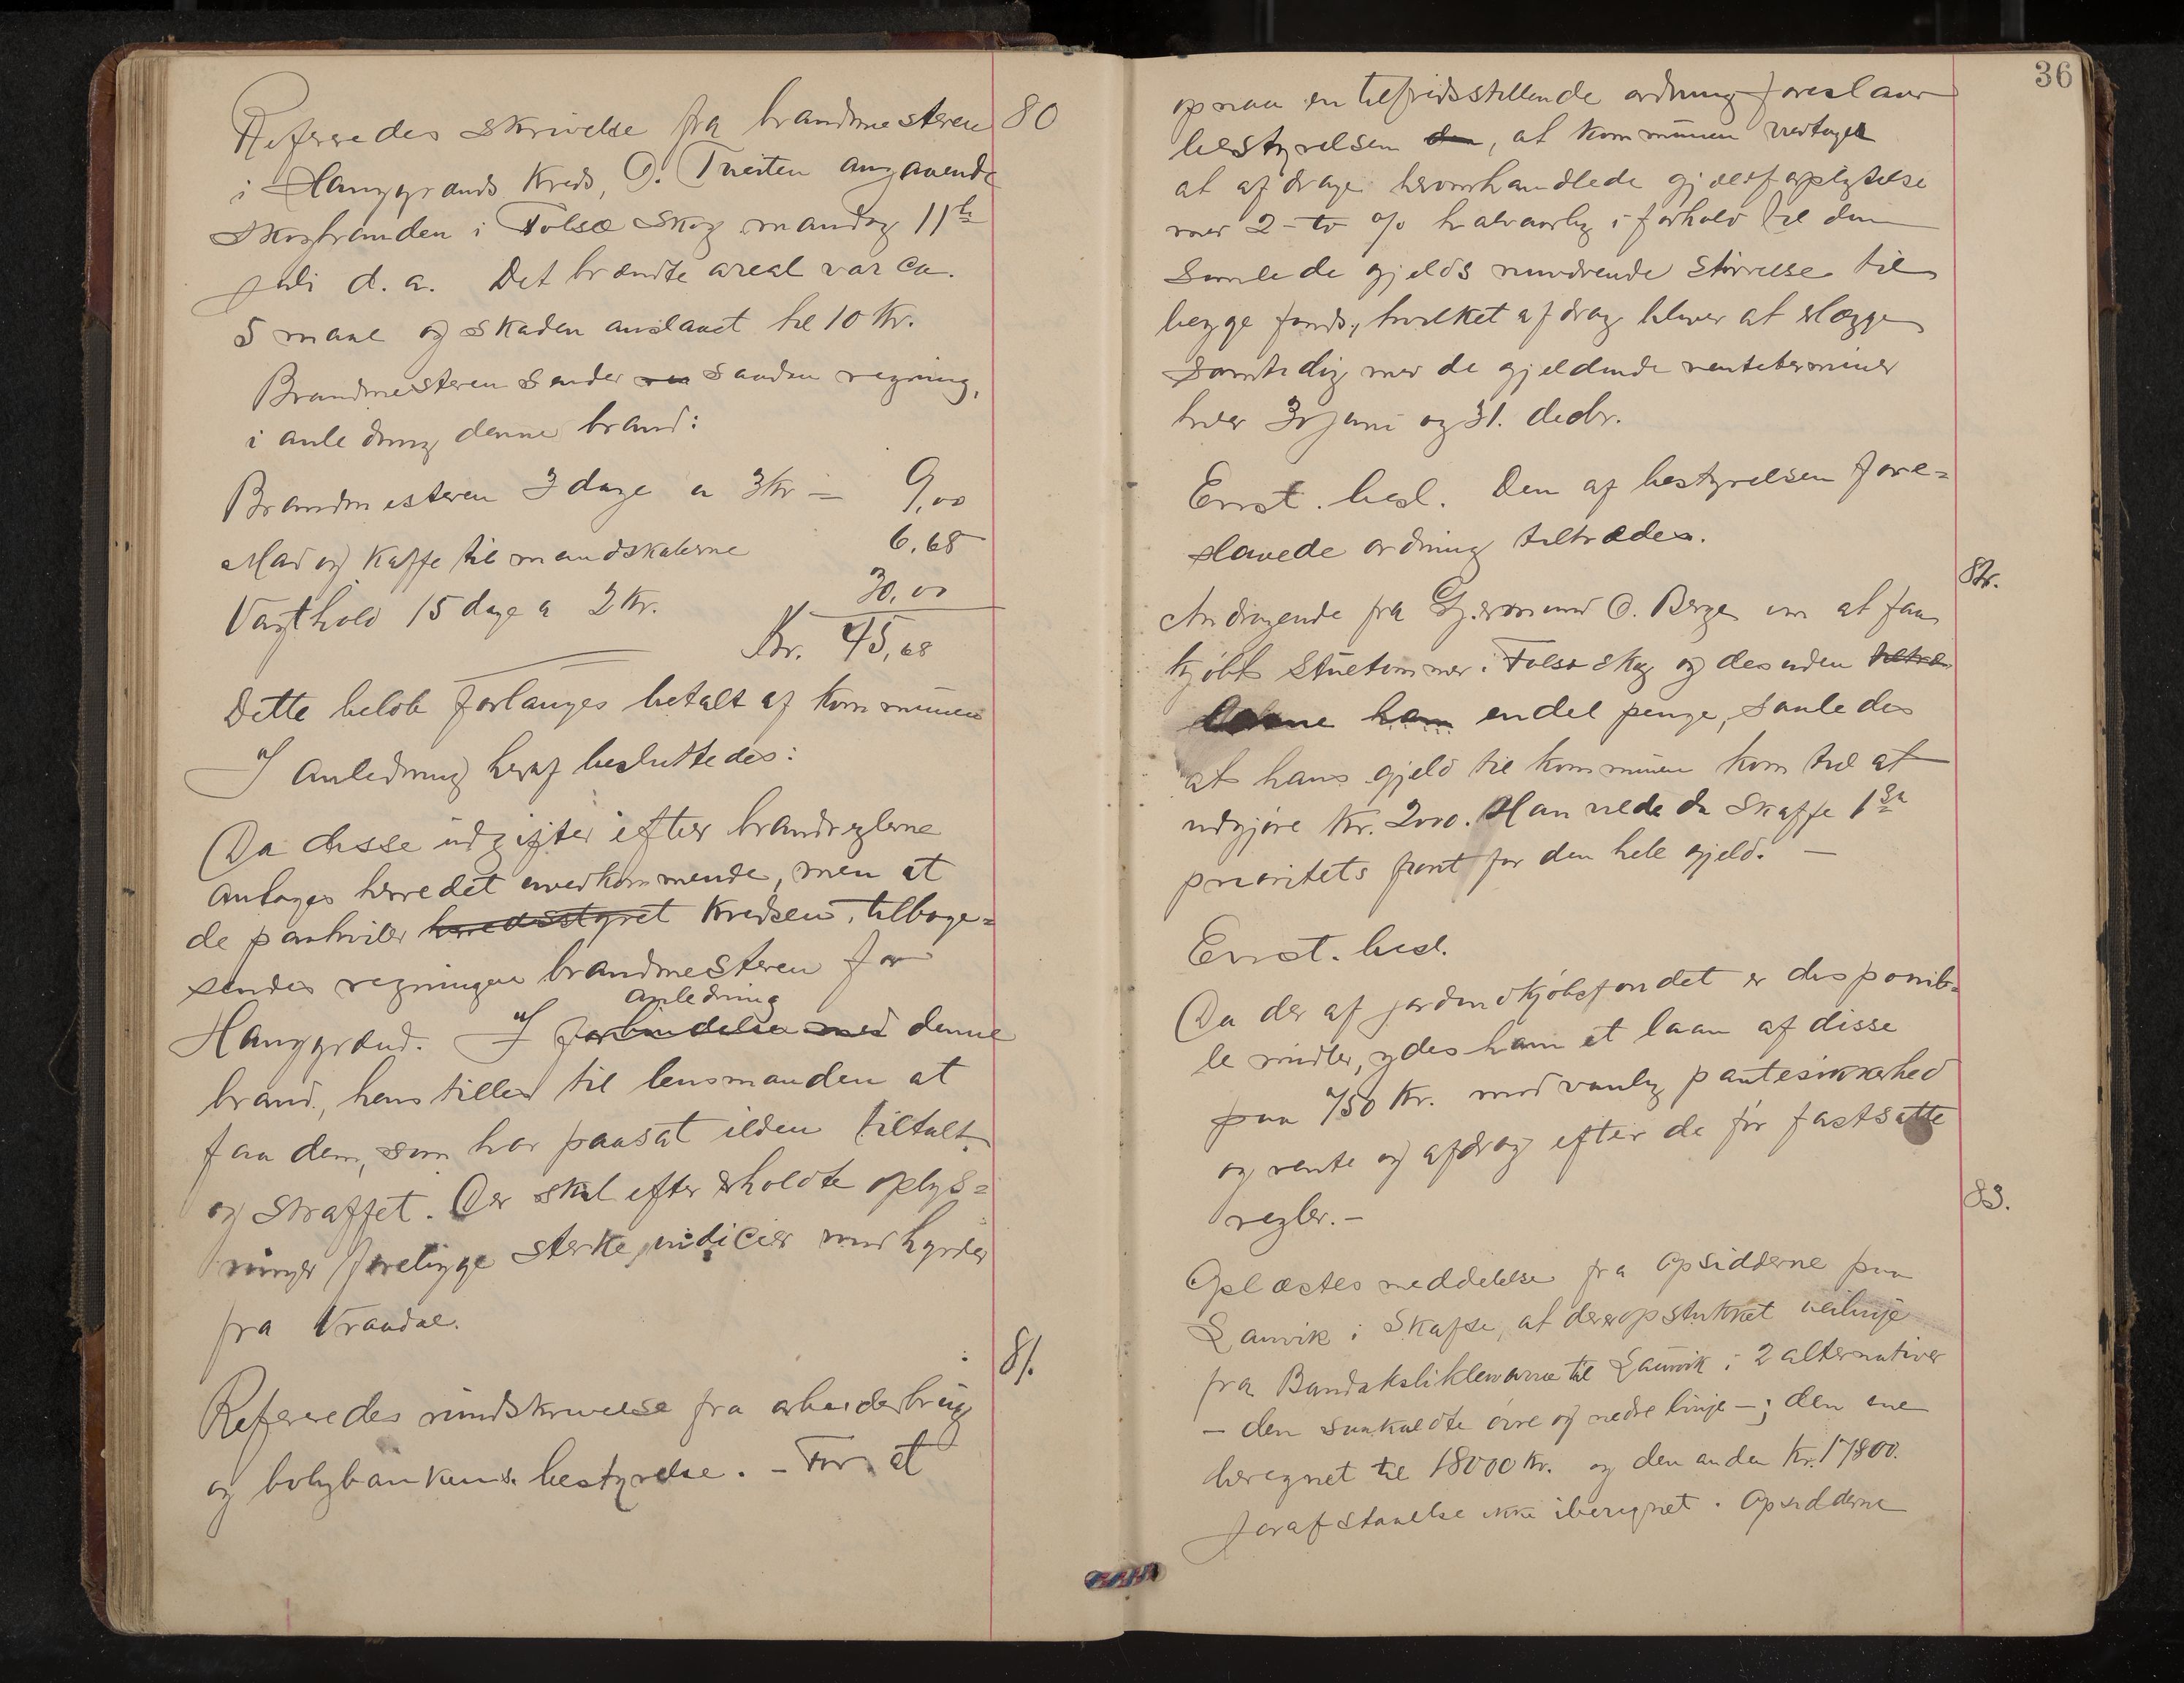 80
Refereredes skrivelse fra brandmesteren
i Hauggrænds Kreds, O. Tveiten angaaende
skogbranden i Folsæ skog mandag 11te
juli d. a. Det brændte areal var ca.
5 maal og skaden anslaaet til 10 Kr.
Brandmesteren sender saadan regning,
i anledning denne brand:
Brandmesteren 3 dage a 3 Kr = 9,00
Mad og Kaffe til mandskaberne 6,68
Vagthold 15 dage a 2 Kr. 30,00
Kr. 45,68
Dette beløb forlanges betalt af kommunen
I anledning heraf besluttedes:
Da disse udgifter efter brandreglerne
antages herredet uvedkommende, men at
de paahviler herredsstyret Kredsen, tilbage=
sendes regningen brandmesteren for
anledning
Hauggrænd. I forbindelse med denne
brand, henstilles til lensmanden at
faa dem, som har paasat ilden tiltalt
og straffet. Der skal efter erholdte oplys=
ninger foreligge sterke indicier mod hyrder
fra Vraadal.
81.
Refereredes rundskrivelse fra arbeiderbrug
og boligbankens bestyrelse. - For at
36
opnaa en tilfredsstillende ordning foreslaar
bestyrelsen den, at kommunen vedtager
at afdrage heromhandlede gjældsforpligtelse
med 2 - to % halvaarlig i forhold til den
samlede gjelds nuværende størrelse til
begge fonds, hvilket afdrag bliver at erlægge
samtidig med de gjeldende renteterminer
hver 30 juni og 31. decbr.
Enst. besl. Den af bestyrelsen fore=
slaaede ordning tiltrædes.
82.
Andragende fra Gjermund O. Berge om at faa
kjøbt stuetømmer i Folsæ skog og desuden
laane ham endel penge, saaledes
at hans gjeld til kommunen kom til at
udgjøre Kr. 2000. Han vilde da skaffe 1ste
prioritets pant for den hele gjeld. -
Enst. besl.
Da der af jordindkjøbsfondet er disponib=
le midler, ydes ham et laan af disse
paa 750 Kr. mod vanlig pantesikkerhed
og rente og afdrag efter de før fastsatte
regler. -
83.
Oplæstes meddelelse fra opsidderne paa
Lauvik i Skafse, at der er opstukket veilinje
fra Bandaksliklevarne til Lauvik i 2 alternativer
- den saakaldte øvre og nedre linje -; den ene
beregnet til 18000 Kr. og den anden Kr. 17800.
Jordafstaaelse ikke iberegnet. Opsidderne